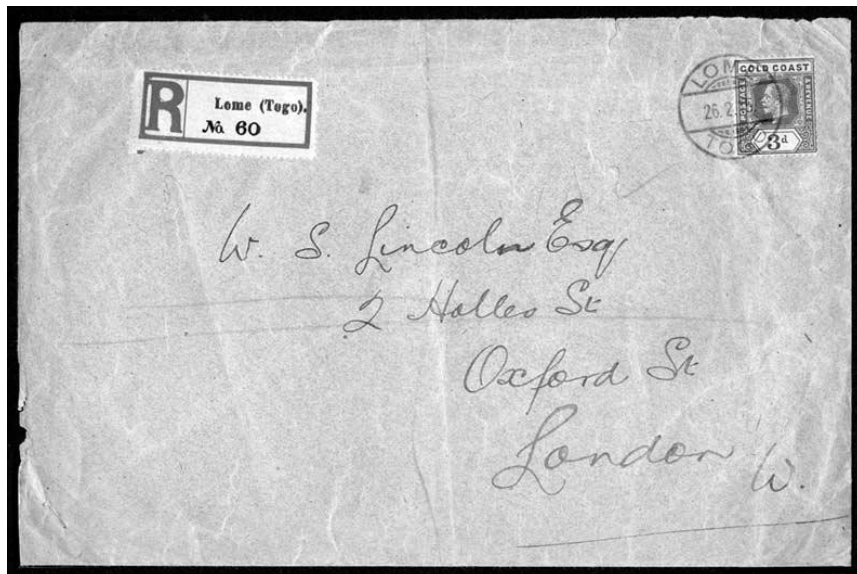 R
Lome (Togo).
No 60
LOME
26.2.
TOGO
GOLD COAST
POSTAGE
& REVENUE
3d
W. S. Lincoln Esq
2 Holles St
Oxford St
London
W.